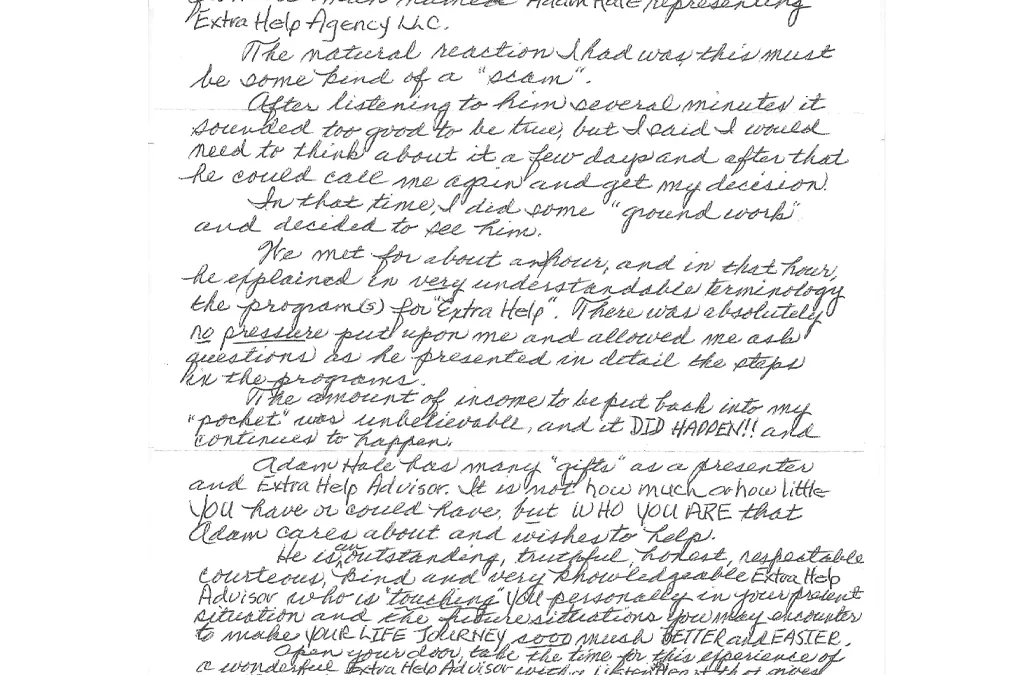 Adam Hale representing
Extra Help Agency LLC.
The natural reaction I had was, this must
be some kind of a "scam".
After listening to him several minutes it
sounded too good to be true, but I said I would
need to think about it a few days and after that
he could call me again and get my decision.
In that time, I did some "ground work"
and decided to see him.
We met for about an hour, and in that hour,
he explained in very understandable terminology
the program(s) for "Extra Help". There was absolutely
no pressure put upon me and allowed me ask
questions as he presented in detail the steps
in the programs.
The amount of income to be put back into my
"pocket" was unbelievable, and it DID HAPPEN!! and
continues to happen.
Adam Hale has many "gifts" as a presenter
and Extra Help Advisor. It is not how much or how little
YOU have or could have, but WHO YOU ARE that
Adam cares about and wishes to help.
He is an outstanding, truthful, honest, respectable
courteous, kind and very knowledgeable Extra Help
Advisor who is "touching" YOU personally in your present
situation and the future situations you may encounter
to make YOUR LIFE JOURNEY sooo much BETTER and EASIER.
Open your door, take the time for this experience of
a wonderful Extra Help Advisor with a that gives